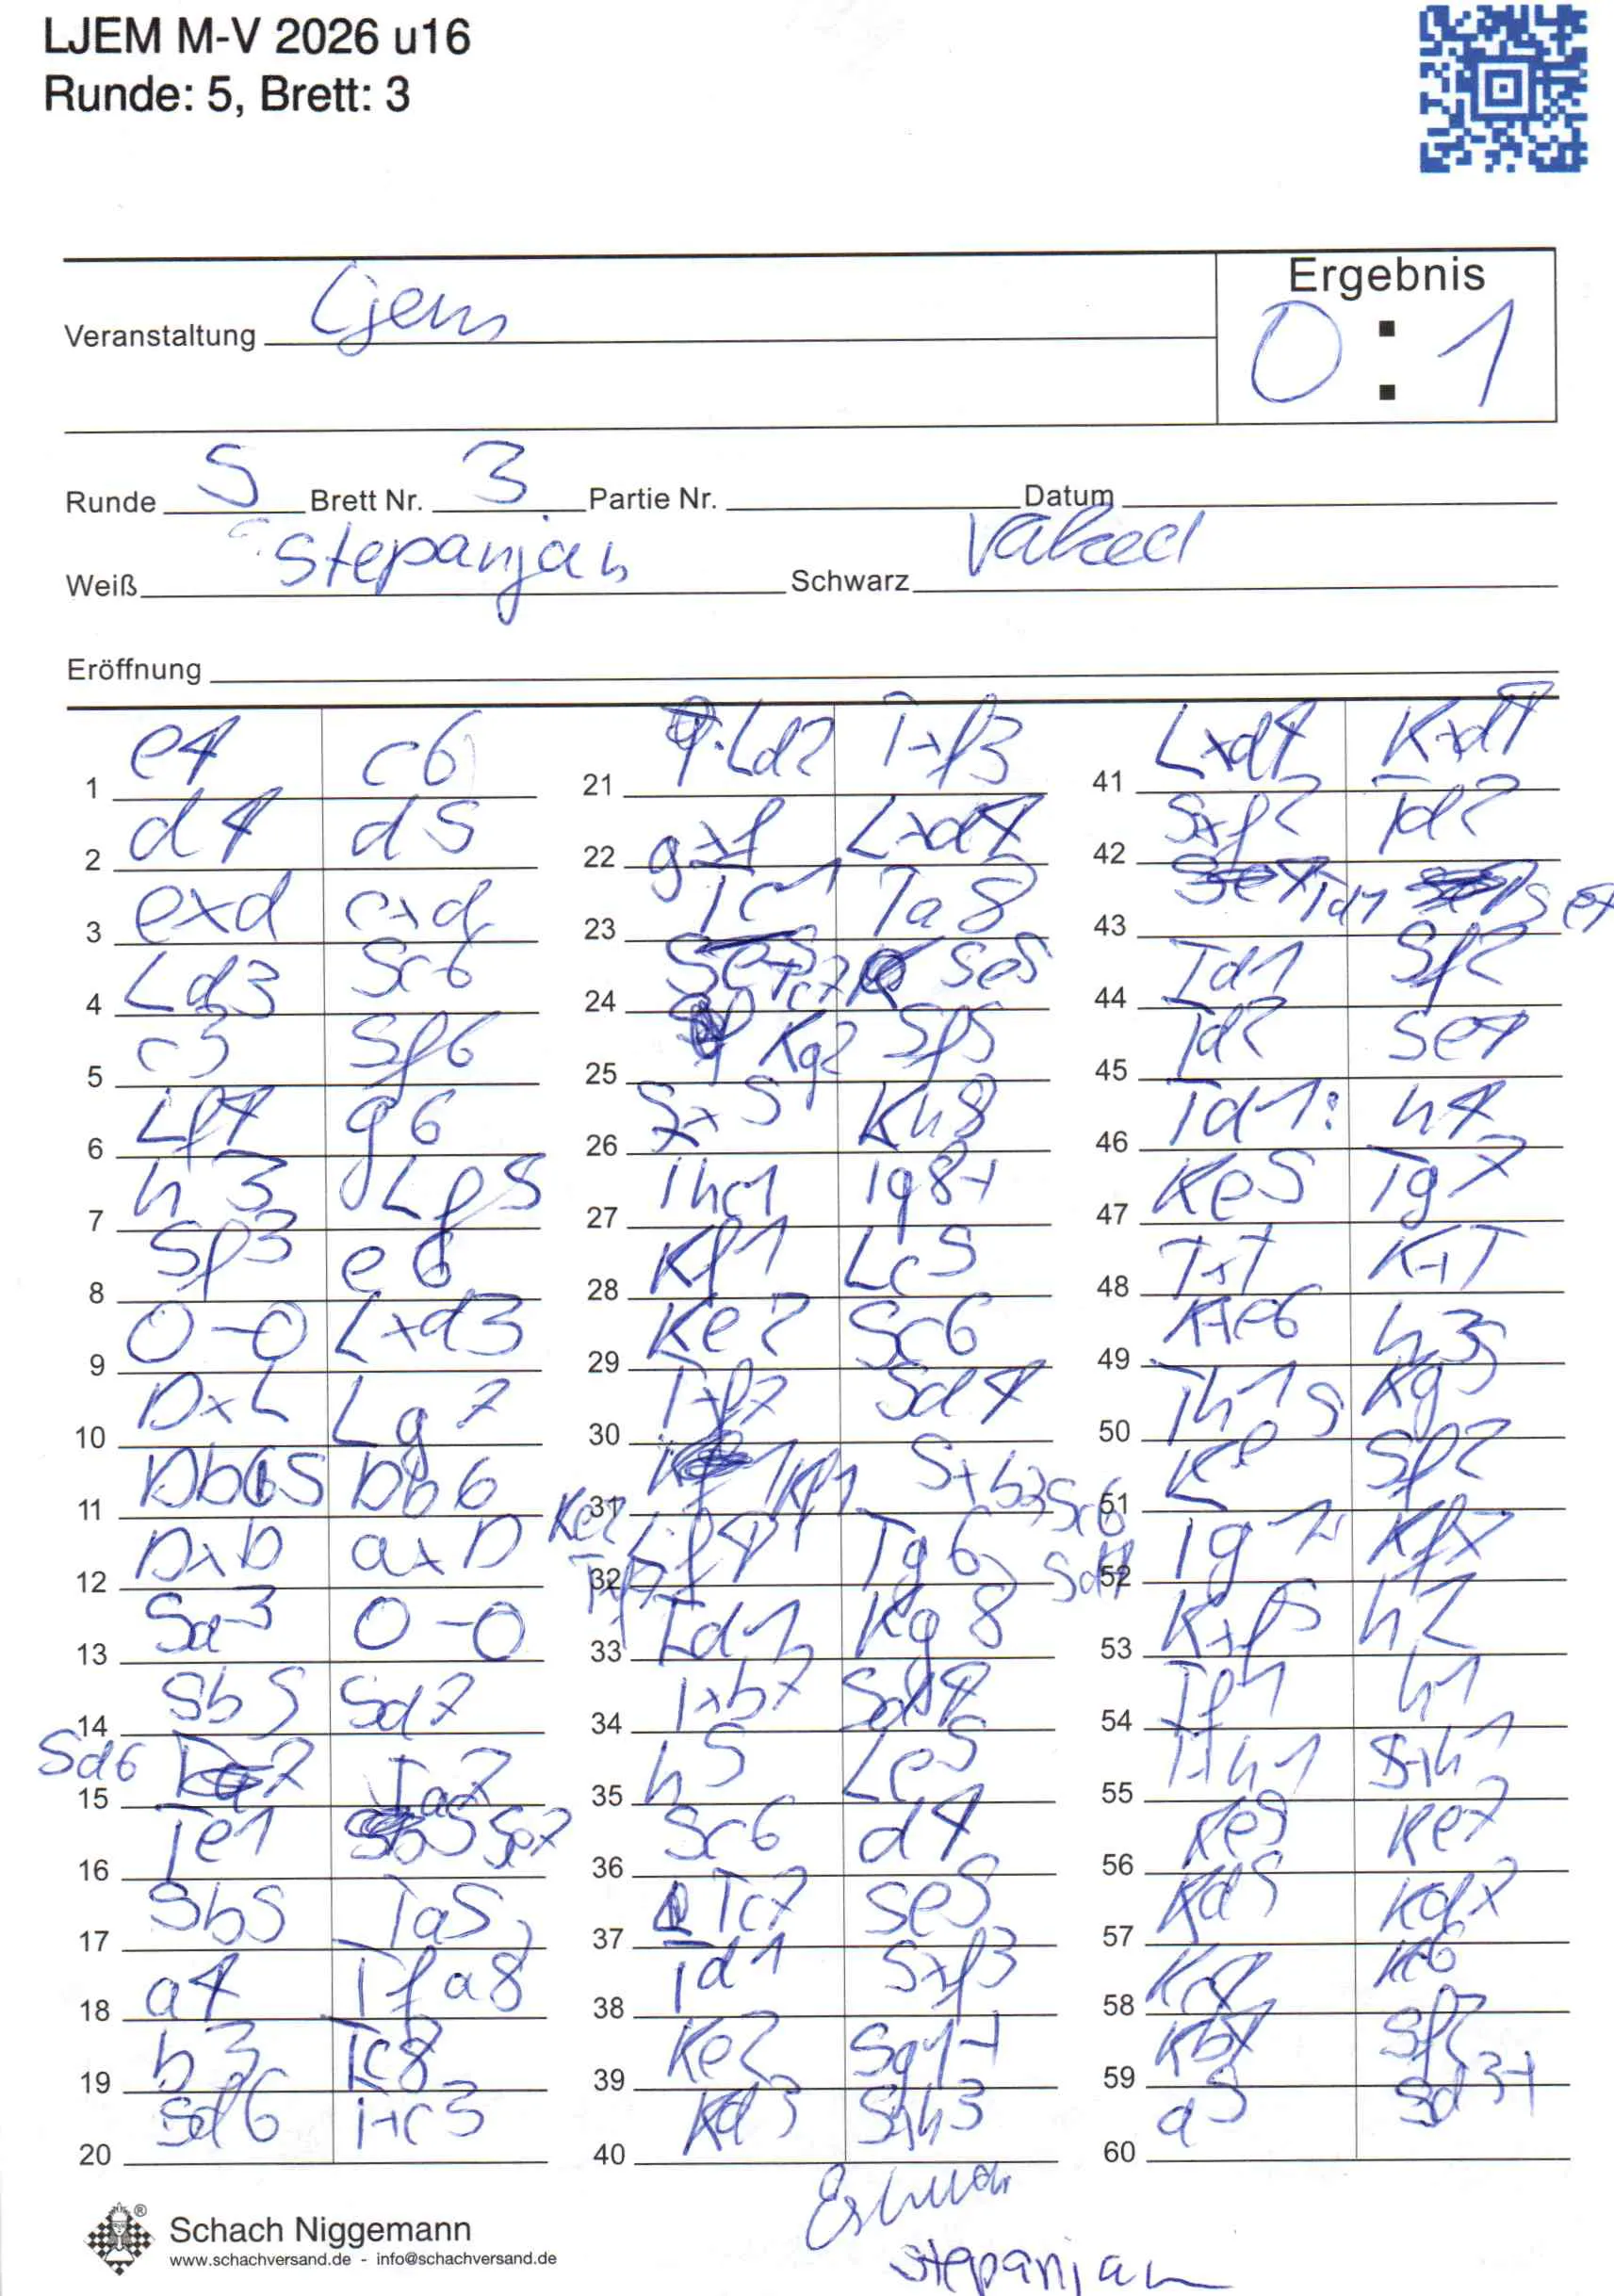 LJEM M-V 2026 u16
Runde: 5, Brett: 3
Ergebnis
Veranstaltung Ljem
0 : 1
Runde 5 Brett Nr. 3 Partie Nr. Datum
Weiß Stepanjan Schwarz
Eröffnung
1 e4 c6
2 d4 d5
3 exd cxd
4 Ld3 Sc6
5 c3 Sf6
6 Lf4 g6
7 h3 Lf5
8 Sf3 e6
9 0-0 Lxd3
10 DxL Lg7
11 Db5 Db6
12 DxD axD
13 Sa3 0-0
14 Sb5 Sd7
15 Sd6 Ta7
16 Te1 Se7
17 Sb5 Ta5
18 a4 Tfa8
19 b3 Tc8
20 Sd6 Txc3
21 Ld2 Txf3
22 gxf Lxd4
23 Tc1 Ta8
24 Tc7 Se5
25 Kg2 Sf5
26 SxS Kh8
27 Thc1 Tg8+
28 Kf1 Lc5
29 Ke2 Sc6
30 Txf7 Sd4
31 Kf1 Sxb3
Ke2 Sc6
32 Lf4 Tg6
Txf7 Sd4
33 Td1 Kg8
34 Txb7 Sd4
35 h5 Le5
36 Sc6 d4
37 Tc7 Se5
38 Td1 Sxf3
39 Ke2 Sg1+
40 Kd3 Sxh3
41 Lxd4 Kxd4
42 Sxf2 Td2
43 Td1 Se4
44 Td1 Sf2
45 Td2 Se4
46 Td1: h4
47 Ke5 Tg7
48 TxT KxT
49 Kxe6 h3
50 Th1 Kg5
51 Ke5 Sf2
52 Tg1 Kf7
53 Kxf5 h2
54 Tf1 h1
55 Txh1 Sxh1
56 Ke5 Ke7
57 Kd5 Kd7
58 Kc4 Kc6
59 Kb4 Sf2
60 a5 Sd3+
Stepanjan
Schach Niggemann
www.schachversand.de - info@schachversand.de